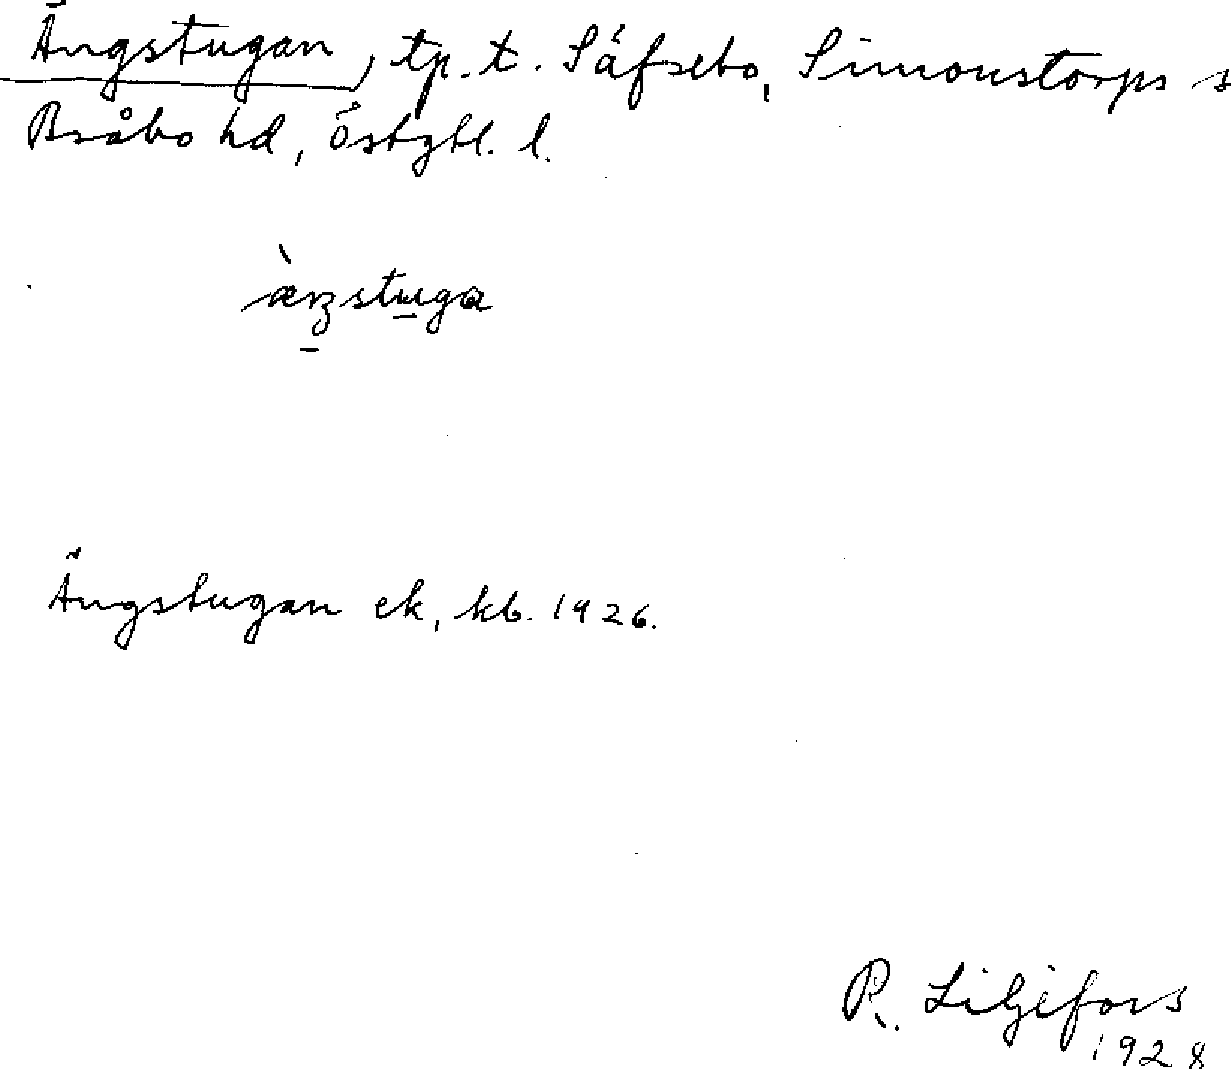 Ängstugan, tp. t. Säfsebo, Simonstorps s
Bråbo hd, Östgtl. l.
Ängstugan ek, kb. 1926.
R. Liljefors
1928